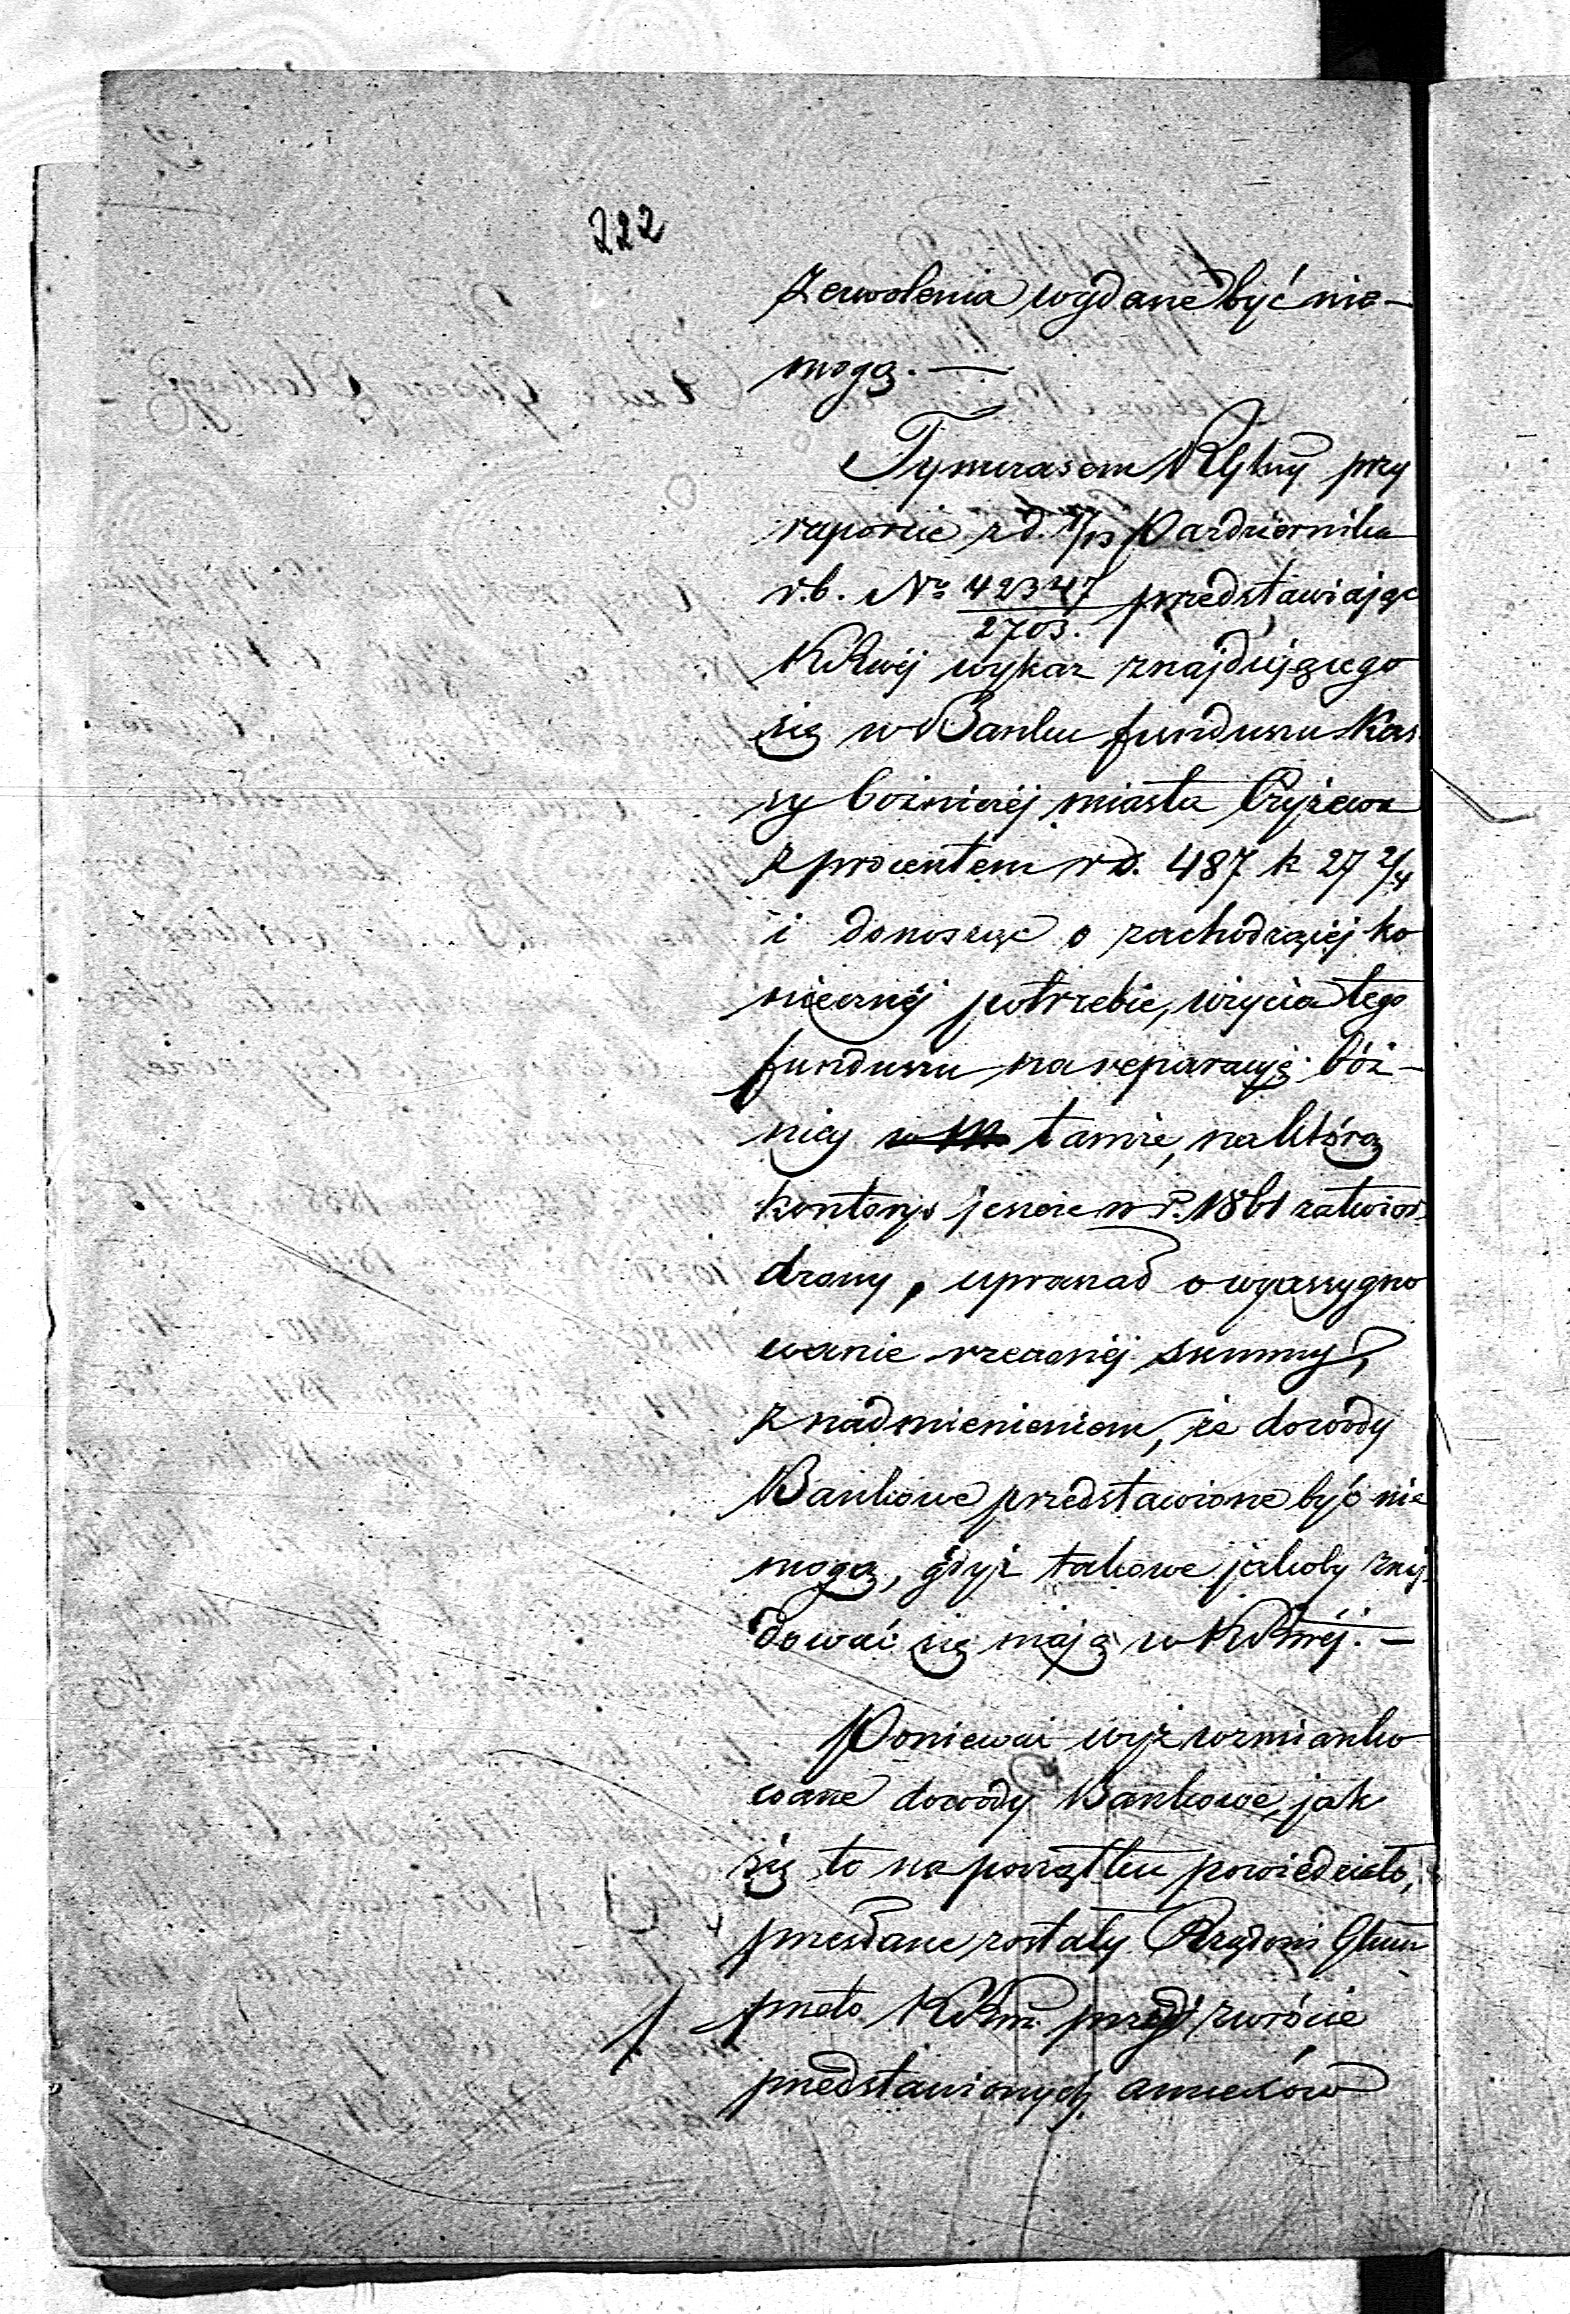 222
zezwolenia wydane być nie-
mogą. —
Tymczasem RGlny przy
raporcie z d. 1/13 Pazdziernika
r.b. No 42347/2703. przedstawiając
KRwéj wykaz znajdującego
się w Banku funduszu Kas-
sy bożniczéj miasta Czyżewa
z procentem rs. 487 k 27 2/4
i donosząc o zachodzącéj ko
niecznéj potrzebie, użycia tego
funduszu na reparacyę bóż-
nicy tamże, na którą
kosztorys jeszcze w r. 1861 zatwier-
dzony, upraszał o wyassygno
wanie rzeczonéj summy,
z nadmienieniem, że dowody
Bankowe przedstawione być nie
mogą, gdyż takowe jakoby znaj-
dować się mają w KRwéj. —
Ponieważ wyż wzmianko
wane dowody Bankowe, jak
się to na początku powiedziało,
przesłane zostały Rządowi Glnu
przeto KR przy zwrócie
przedstawionych annexów